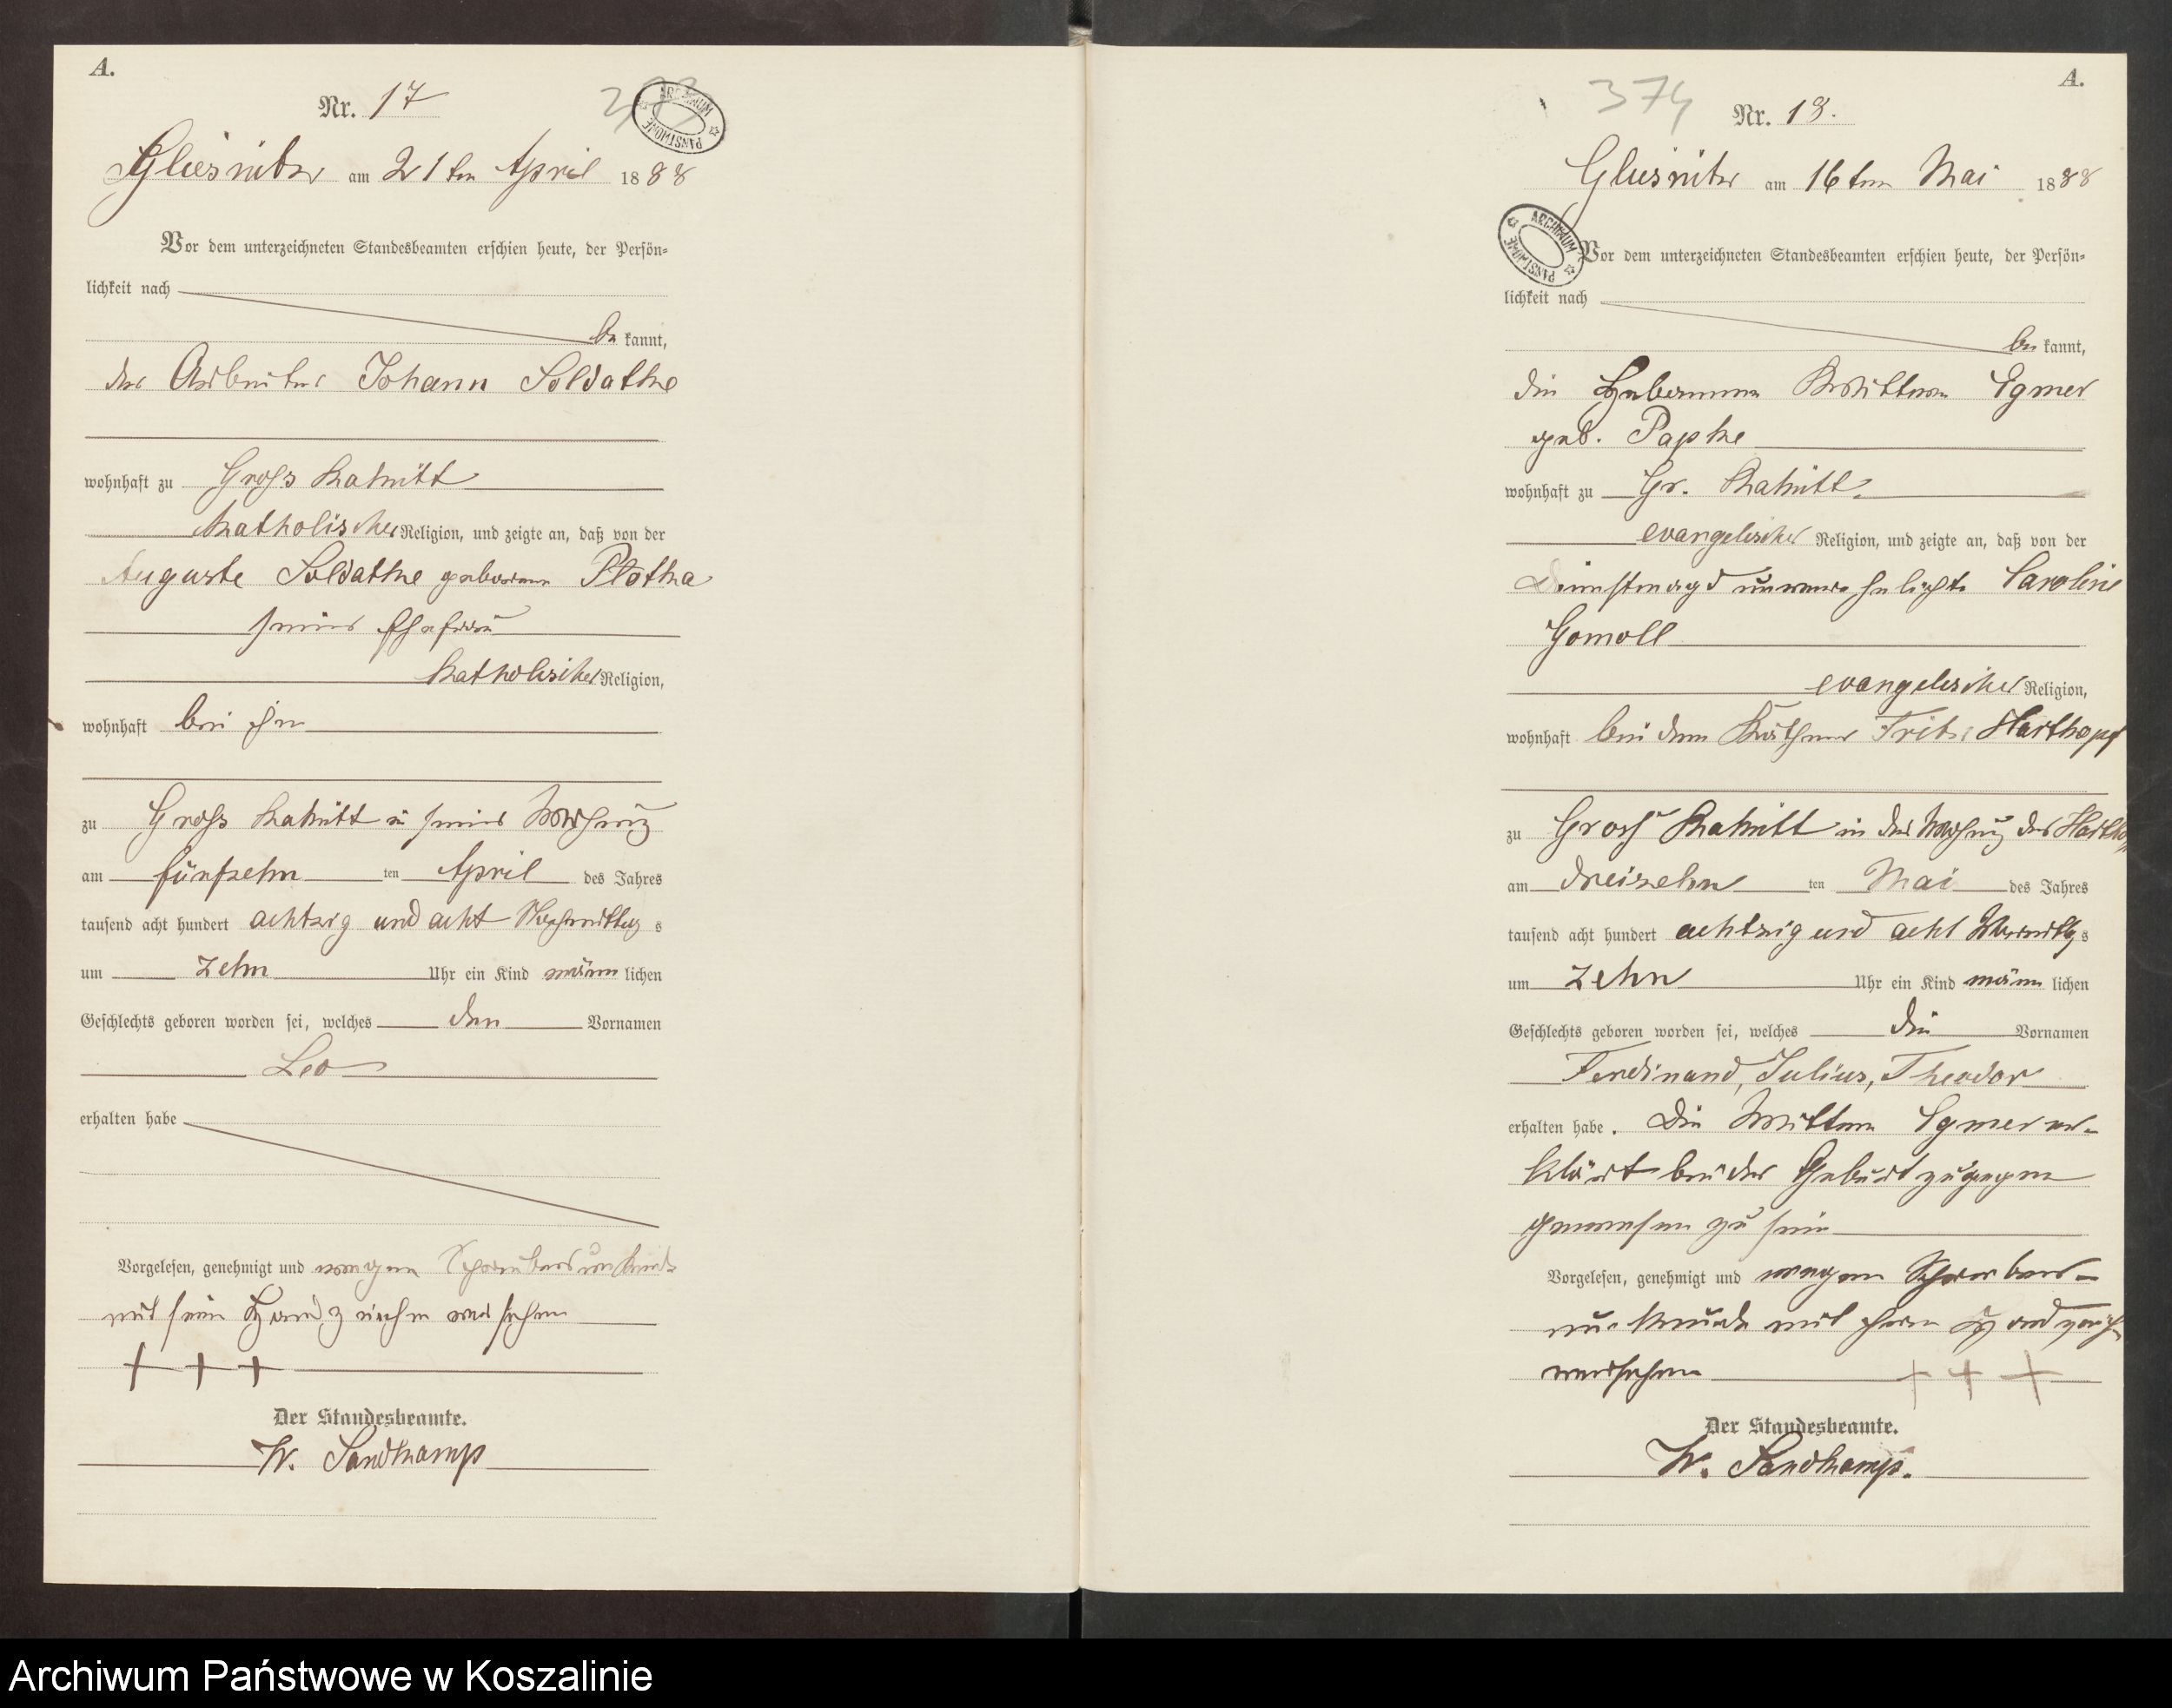 A.
Nr. 17
ARCHIWUM PAŃSTWOWE
Gliesnitz am 21ten April 1888
Vor dem unterzeichneten Standesbeamten erschien heute, der Persön-
lichkeit nach
be kannt,
der Arbeiter Johann Soldathe
wohnhaft zu Gross Rakitt
katholischer Religion, und zeigte an, daß von der
Auguste Soldathe geborene Plotka
seiner Ehefrau
katholischer Religion,
wohnhaft bei ihm
zu Gross Rakitt in seiner Wohnung
am fünfzehn ten April des Jahres
tausend acht hundert achtzig und acht Nachmittag s
um zehn Uhr ein Kind männ lichen
Geschlechts geboren worden sei, welches den Vornamen
Leo
erhalten habe
Vorgelesen, genehmigt und wegen Schreibensunkunde
mit sein Handzeichen versehen
+ + +
Der Standesbeamte.
W. Sandkamp
A.
374
Nr. 18.
Gliesnitz am 16ten Mai 1888
ARCHIWUM PAŃSTWOWE
Vor dem unterzeichneten Standesbeamten erschien heute, der Persön-
lichkeit nach
be kannt,
die Hebamme Wittwe Egmer
geb. Papke
wohnhaft zu Gr. Rakitt
evangelischer Religion, und zeigte an, daß von der
Dienstmagd unverehelichte Caroline
Gomoll
evangelischer Religion,
wohnhaft bei dem Käthner Fritz Harthopf
zu Gross Rakitt in der Wohnung des
am dreizehn ten Mai des Jahres
tausend acht hundert achtzig und acht Vormittag s
um zehn Uhr ein Kind männ lichen
Geschlechts geboren worden sei, welches die Vornamen
Ferdinand, Julius, Theodor
erhalten habe. Die Wittwe Egmer er-
klärt bei der Geburt zugegen
gewesen zu sein
Vorgelesen, genehmigt und wegen Schreibens-
unkunde mit ihrem Handzeichen
versehen + + +
Der Standesbeamte.
W. Sandkamp.
Archiwum Państwowe w Koszalinie